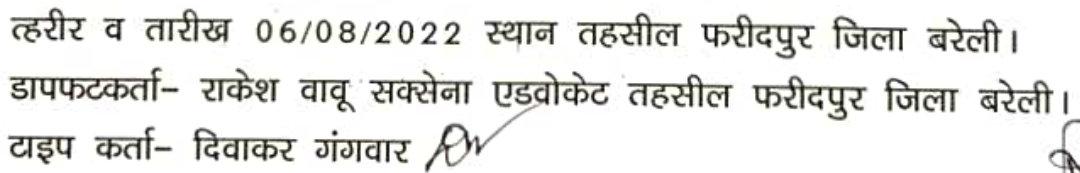 त्हरीर व तारीख 06/08/2022 स्थान तहसील फरीदपुर जिला बरेली।
डापफटकर्ता– राकेश वावू सक्सेना एडवोकेट तहसील फरीदपुर जिला बरेली।
टाइप कर्ता– दिवाकर गंगवार